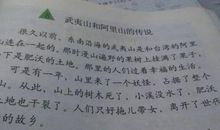 武夷山和阿里山的传说
很久以前，东南沿海的武夷山是和台湾的阿里
山连在一起的。那时漫山遍野的树上挂满了果子，
下是肥沃的土地。那里的人们过着幸福的生活。
可是有一年，山里来了一个妖怪，占据了整个
山。从此，山上的树木死了，小溪没水了，肥沃
土地也干裂了。人们只好拖儿带女，离开了世代
的故乡。